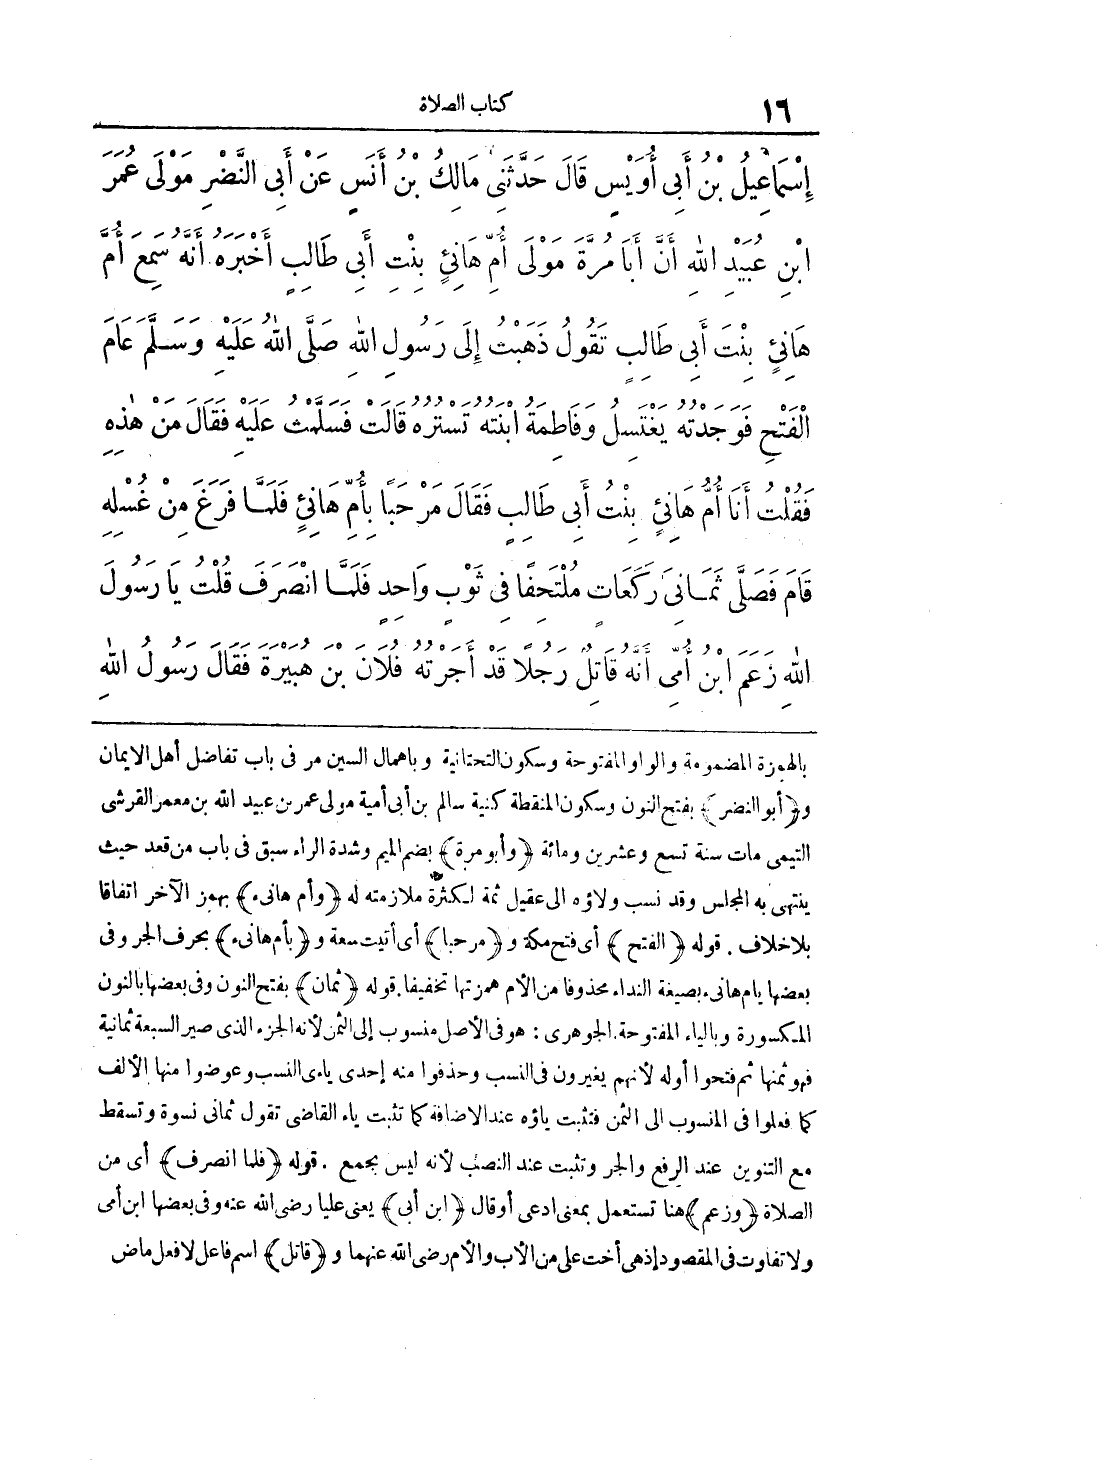 ١٦
كتاب الصلاة
إِسْمَاعِيلُ بْنُ أَبِى أُوَيْسٍ قَالَ حَدَّثَنِى مَالِكُ بْنُ أَنَسٍ عَنْ أَبِى النَّضْرِ مَوْلَى عُمَرَ
ابْنِ عُبَيْدِ اللهِ أَنَّ أَبَا مُرَّةَ مَوْلَى أُمِّ هَانِئٍ بِنْتِ أَبِى طَالِبٍ أَخْبَرَهُ أَنَّهُ سَمِعَ أُمَّ
هَانِئٍ بِنْتَ أَبِى طَالِبٍ تَقُولُ ذَهَبْتُ إِلَى رَسُولِ اللهِ صَلَّى اللهُ عَلَيْهِ وَسَلَّمَ عَامَ
الْفَتْحِ فَوَجَدْتُهُ يَغْتَسِلُ وَفَاطِمَةُ ابْنَتُهُ تَسْتُرُهُ قَالَتْ فَسَلَّمْتُ عَلَيْهِ فَقَالَ مَنْ هٰذِهِ
فَقُلْتُ أَنَا أُمُّ هَانِئٍ بِنْتُ أَبِى طَالِبٍ فَقَالَ مَرْحَبًا بِأُمِّ هَانِئٍ فَلَمَّا فَرَغَ مِنْ غُسْلِهِ
قَامَ فَصَلَّى ثَمَانِىَ رَكَعَاتٍ مُلْتَحِفًا فِى ثَوْبٍ وَاحِدٍ فَلَمَّا انْصَرَفَ قُلْتُ يَا رَسُولَ
اللهِ زَعَمَ ابْنُ أُمِّى أَنَّهُ قَاتِلٌ رَجُلًا قَدْ أَجَرْتُهُ فُلَانَ بْنَ هُبَيْرَةَ فَقَالَ رَسُولُ اللهِ
بالهمزة المضمومة والواو المفتوحة وسكون التحتانية وباهمال السين مر فى باب تفاضل أهل الايمان
و﴿أبو النضر﴾ بفتح النون وسكون المنقطة كنية سالم بن أبى أمية مولى عمر بن عبيد الله بن معمر القرشى
التيمى مات سنة تسع وعشرين ومائة ﴿وأبو مرة﴾ بضم الميم وشدة الراء سبق فى باب من قعد حيث
ينتهى به المجلس وقد نسب ولاؤه الى عقيل ثمة لكثرة ملازمته له ﴿وأم هانىء﴾ بهمز الآخر اتفاقا
بلا خلاف . قوله ﴿الفتح﴾ أى فتح مكة و﴿مرحبا﴾ أى أتيت سعة و﴿بأم هانىء﴾ بحرف الجر وفى
بعضها يام هانىء بصيغة النداء محذوفا من الأم همزتها تخفيفا. قوله ﴿ثمان﴾ بفتح النون وفى بعضها بالنون
المكسورة وبالياء المفتوحة. الجوهرى : هو فى الأصل منسوب إلى الثمن لأنه الجزء الذى صير السبعة ثمانية
فهو ثمنها ثم فتحوا أوله لأنهم يغيرون فى النسب وحذفوا منه إحدى ياءى النسب وعوضوا منها الألف
كما فعلوا فى المنسوب الى الثمن فتثبت ياؤه عند الاضافة كما تثبت ياء القاضى تقول ثمانى نسوة وتسقط
مع التنوين عند الرفع والجر وتثبت عند النصب لأنه ليس بجمع . قوله ﴿فلما انصرف﴾ أى من
الصلاة ﴿وزعم﴾ هنا تستعمل بمعنى ادعى أو قال ﴿ابن أبى﴾ يعنى عليا رضى الله عنه وفى بعضها ابن أمى
ولا تفاوت فى المقصود إذ هى أخت على من الأب والأم رضى الله عنهما و﴿قاتل﴾ اسم فاعل لا فعل ماض